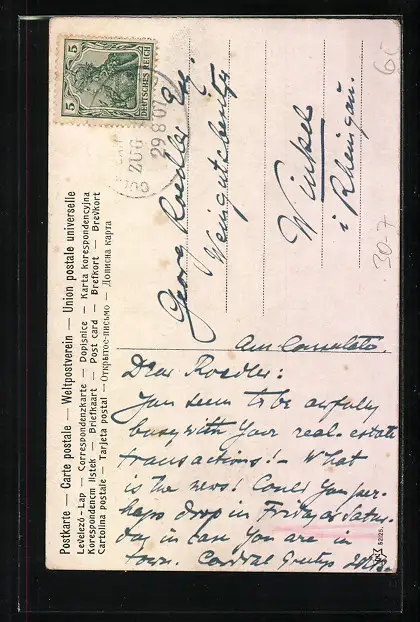 Postkarte — Carte postale — Weltpostverein — Union postale universelle
Levelező-Lap — Correspondenzkarte — Dopisnice — Karta korespondencyjna
Korespondencni listek — Briefkaart — Post card — Brefkort — Brevkort
Cartolina postale — Tarjeta postal — Открытое-письмо — Дописна карта
5 DEUTSCHES REICH 5
ZUG
29 8 07
Georg Roedler Esq.
Weingutsbesitzer
Winkel
i Rheingau.
30-7
Am. Consulate.
Dear Roedler:
You seem to be awfully
busy with your real-estate
transactions! - What
is the news! Could you per-
haps drop in Friday or Satur-
day in case you are in
town. Cordial Greetgs
52125